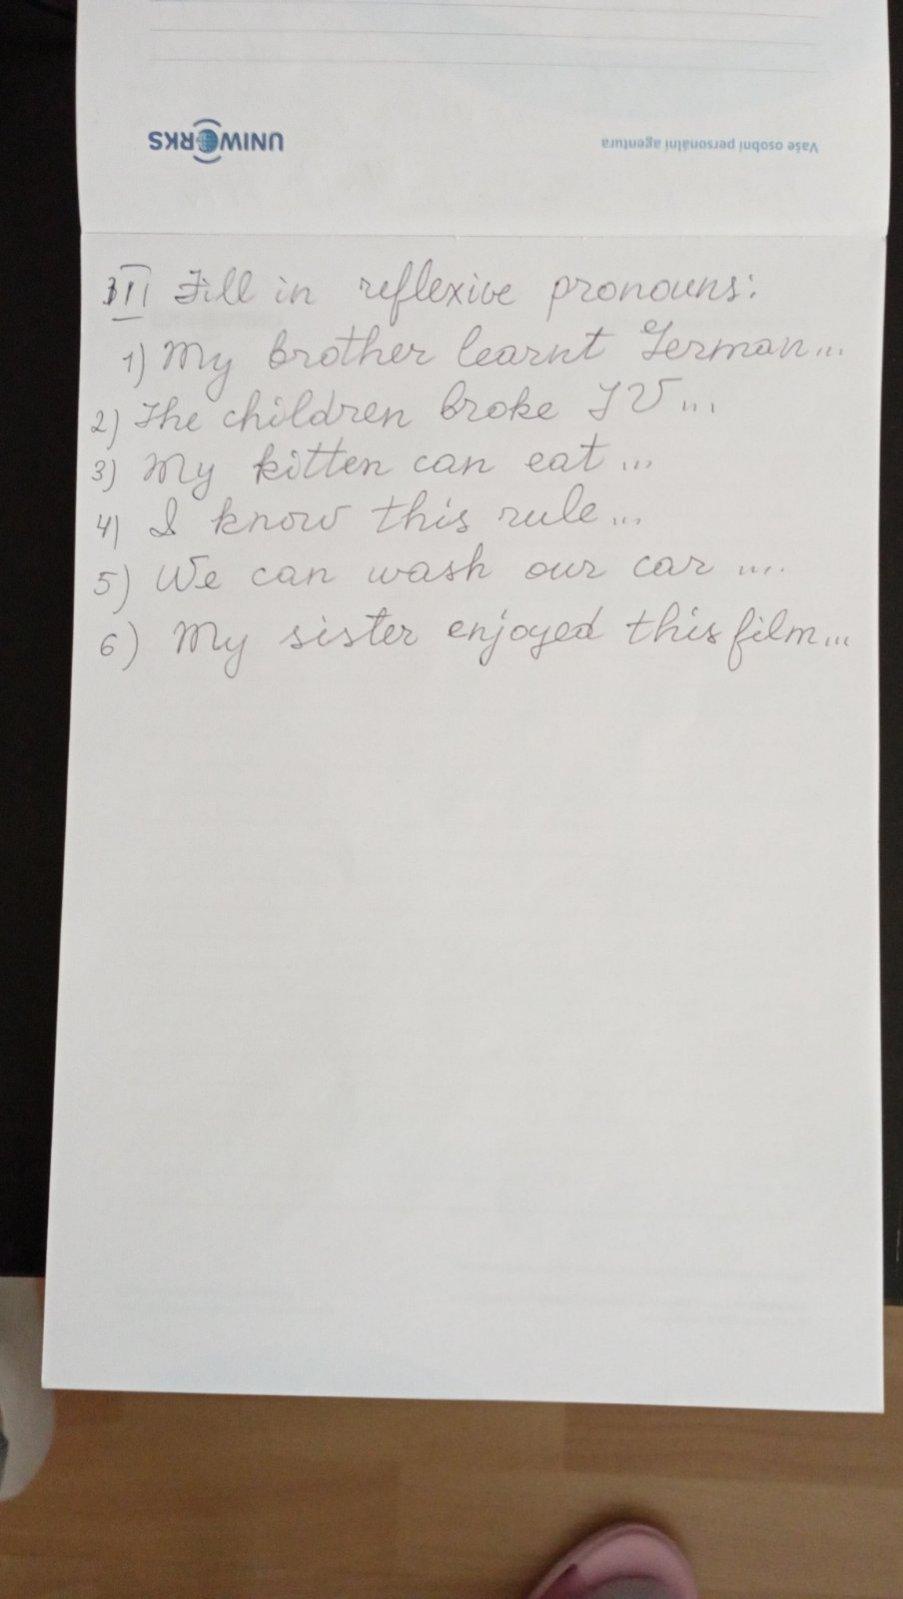 UNIWORKS
Vaše osobní personální agentura
III Fill in reflexive pronouns:
1) My brother learnt German...
2) The children broke TV...
3) My kitten can eat...
4) I know this rule...
5) We can wash our car ....
6) My sister enjoyed this film...